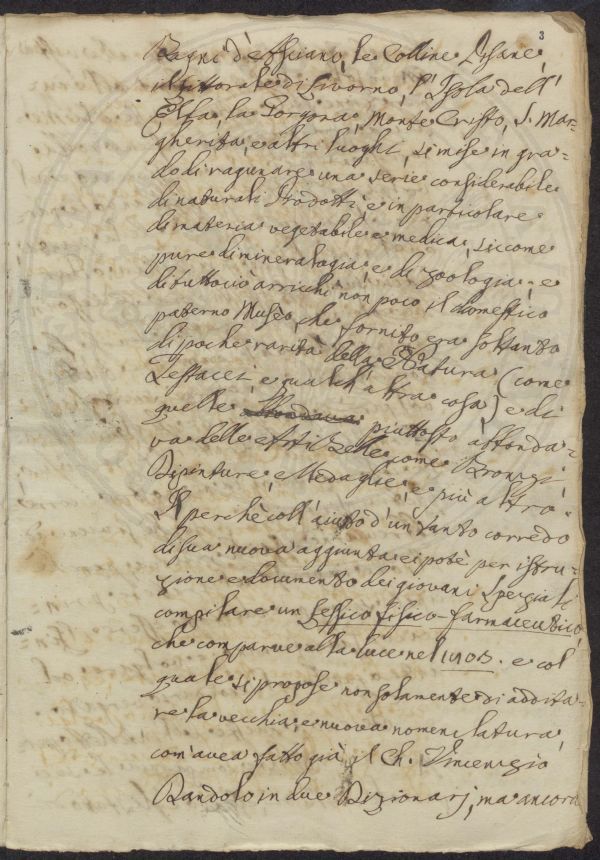 3
Bagni d'Asciano, le Colline Pisane,
il littorale di Livorno, l'Isola dell'
Elba, la Gorgona, Monte Cristo, S. Mar=
gherita, e altri luoghi, si mise in gra=
do di ragunare una serie considerabile
di naturali Prodotti, e in particolare
di materia vegetabile e medica, siccome
pure di mineralogia, e di zoologia; e
di tuttociò arricchì non poco il domestico
paterno Musèo, che fornito era soltanto
di poche rarità della Natura (come
Testacei, e qualch'altra cosa) e di
quelle piuttosto abbonda=
va delle Arti Belle, come Bronzi,
Dipinture, Medaglie, e più altro.
Il perchè coll'aiuto d'un tanto corredo
di sua nuova aggiunta ei potè per istru=
zione e documento dei giovani Speziali
compilare un Lessico fisico-farmaceutico,
che comparve alla luce nel e col
quale si propose non solamente di addita=
re la vecchia, e nuova nomenclatura,
com'avea fatto già il Ch. Vincenzio
Dandolo in due Dizionarj, ma ancora